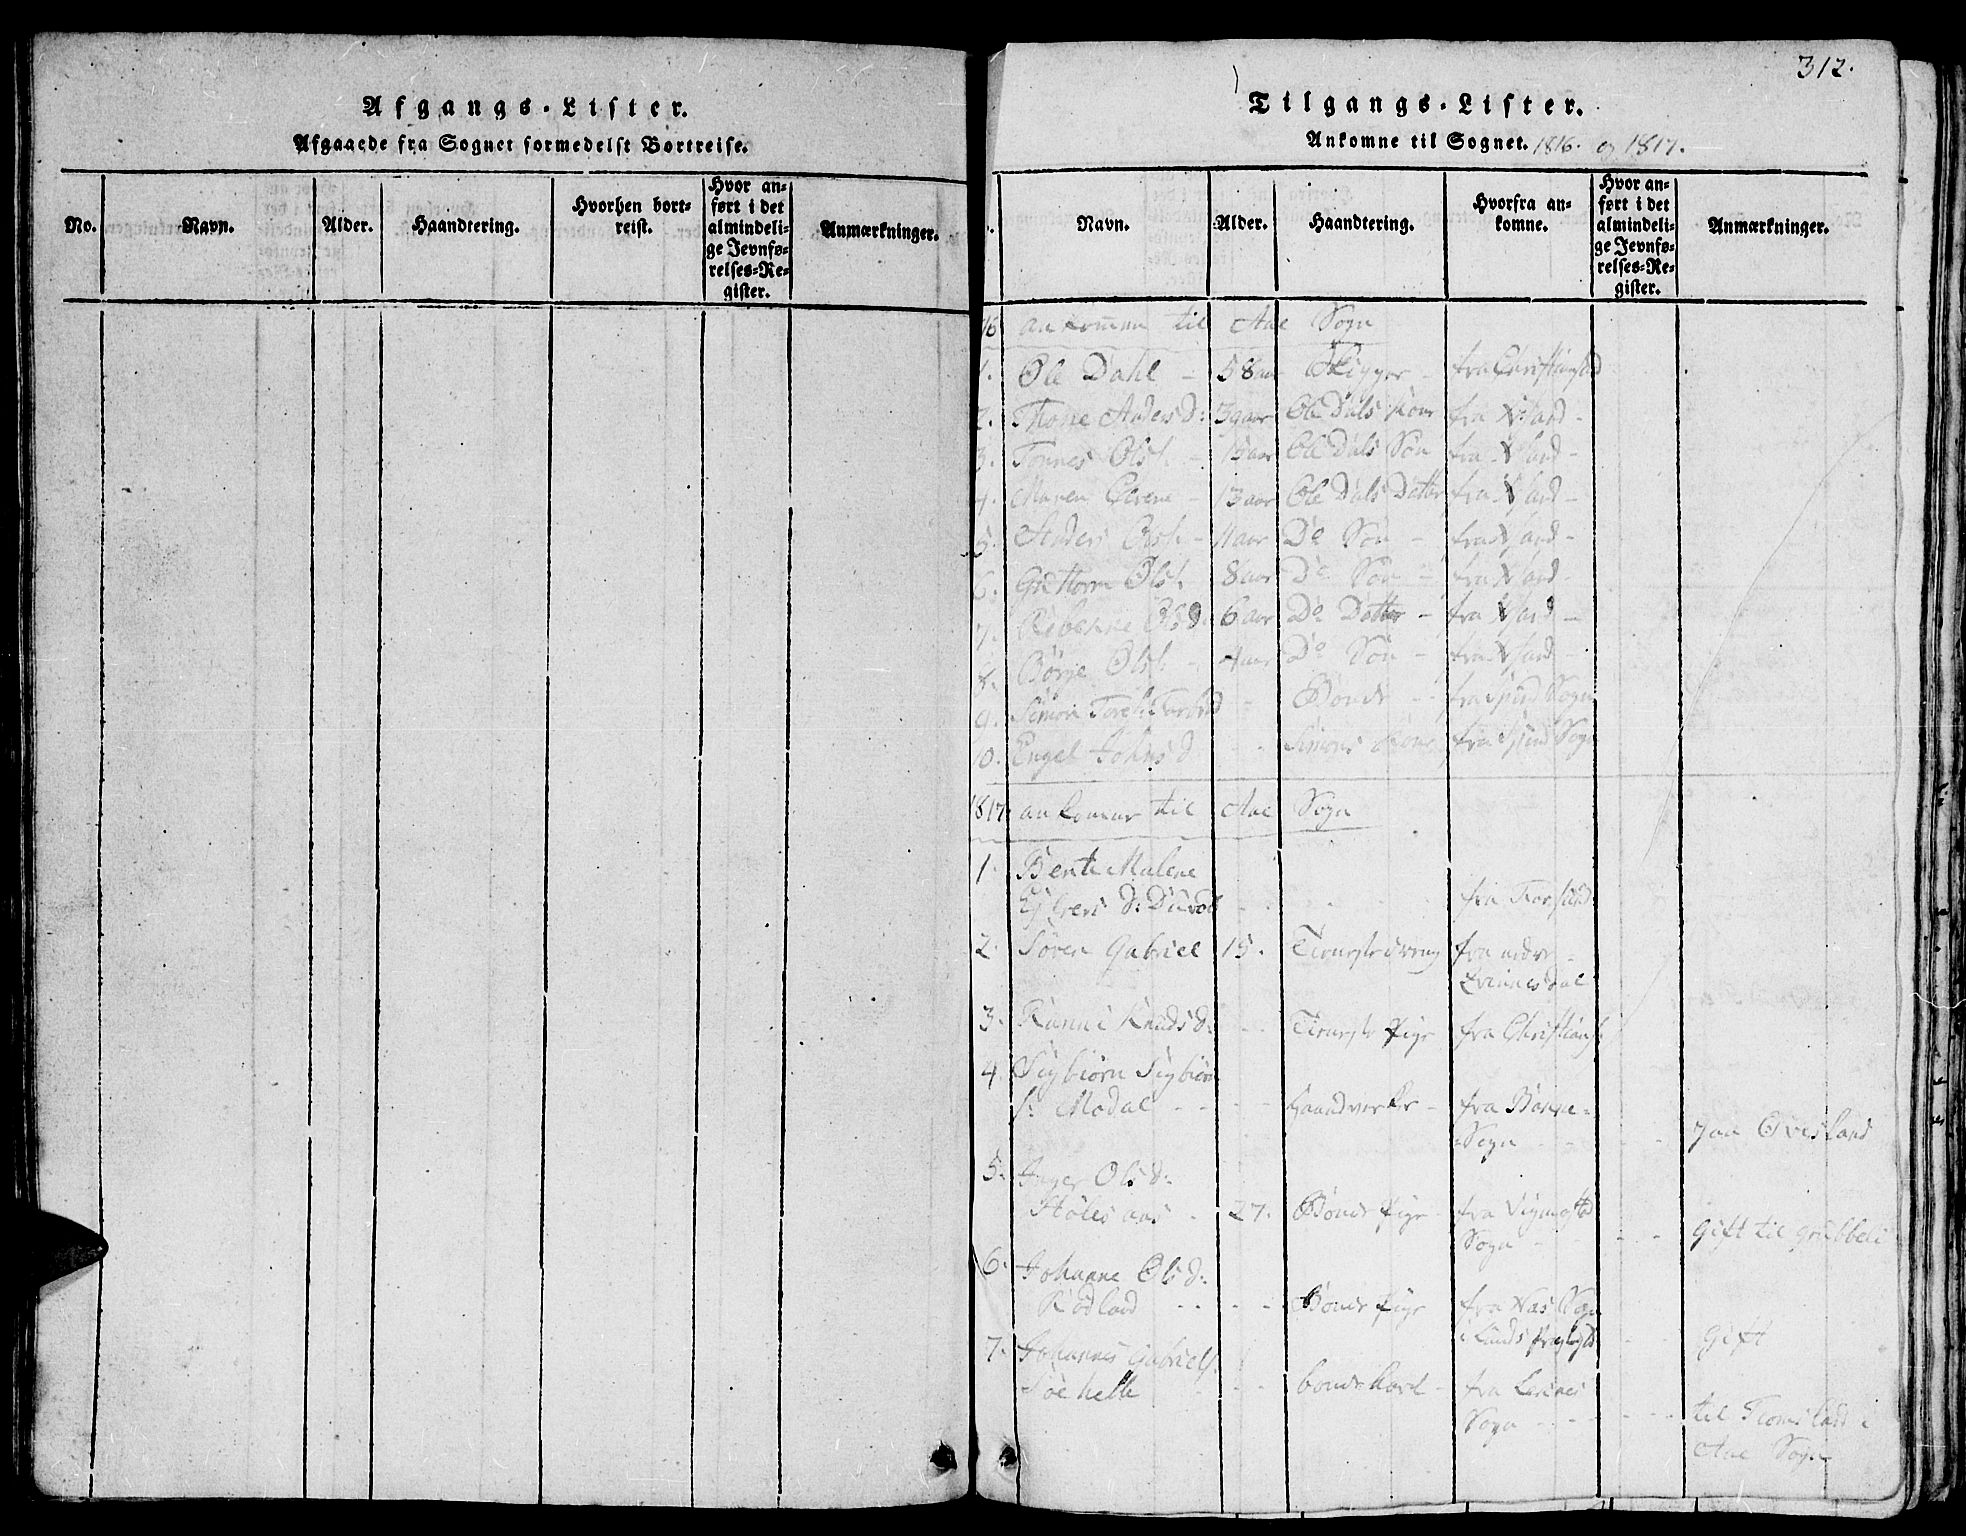 Afgangs-Lister.
Afgaaede fra Sognet formedelst Bortreise.
No.
Navn.
Alder.
Haandtering.
Hvorhen bort-
reist.
Hvor an-
ført i det
almindeli-
ge Jevnfø-
relses-Re-
gister.
Anmærkninger.
312.
Tilgangs-Lister.
Ankomne til Sognet. 1816. og 1817.
Navn.
Alder.
Haandtering.
Hvorfra an-
komne.
Hvor an-
ført i det
almindeli-
ge Jevnfø-
relses-Re-
gister.
Anmærkninger.
16 ankommen til Aae Sogn
1. Ole Dahl - 58 aar Skipper - fra Christiansand
2. Thone Anders D: 39 aar Ole Dals Kone fra Xsand -
3. Tonnes Ols. - 15 aar Ole Dals Søn fra Xsand -
4. Maren - 13 aar Ole Dals Datter fra Xsand -
5. Anders Ols. - 11 aar Do Søn - fra Xsand -
6. Guttorm Ols. 8 aar Do Søn - fra Xsand -
7. Ols D. 6 aar Do Datter - fra Xsand -
8. Børge Ols. - 4 aar Do Søn - fra Xsand -
9. Simon - Bonde - fra Sogn
10. Engel Johns D. Simons Kone fra Sogn
1817. ankomne til Aae Sogn
1. Bente Malene
D: fra
2. Søren Gabriel 15. Tieneste dreng fra nedre -
Qvinnesdal
3. Knuds D: - - Tieneste Pige fra Christians.
4. Sigbiørn Sigbiørn
S: Modal - - - - Haandverker - fra
Sogn - - - paa Øvesland
5. Inger Ols D:
- 27. Bonde Pige fra Vigmostad
Sogn - - - - gift til Grubbeli
6. Johanne Ols D:
Rødland - - - - Bonde Pige fra Næs Sogn
i Præstegield - gift
7. Johannes Gabriels.
- - bonde Karl - fra
Sogn - - - - til i
Aae Sogn